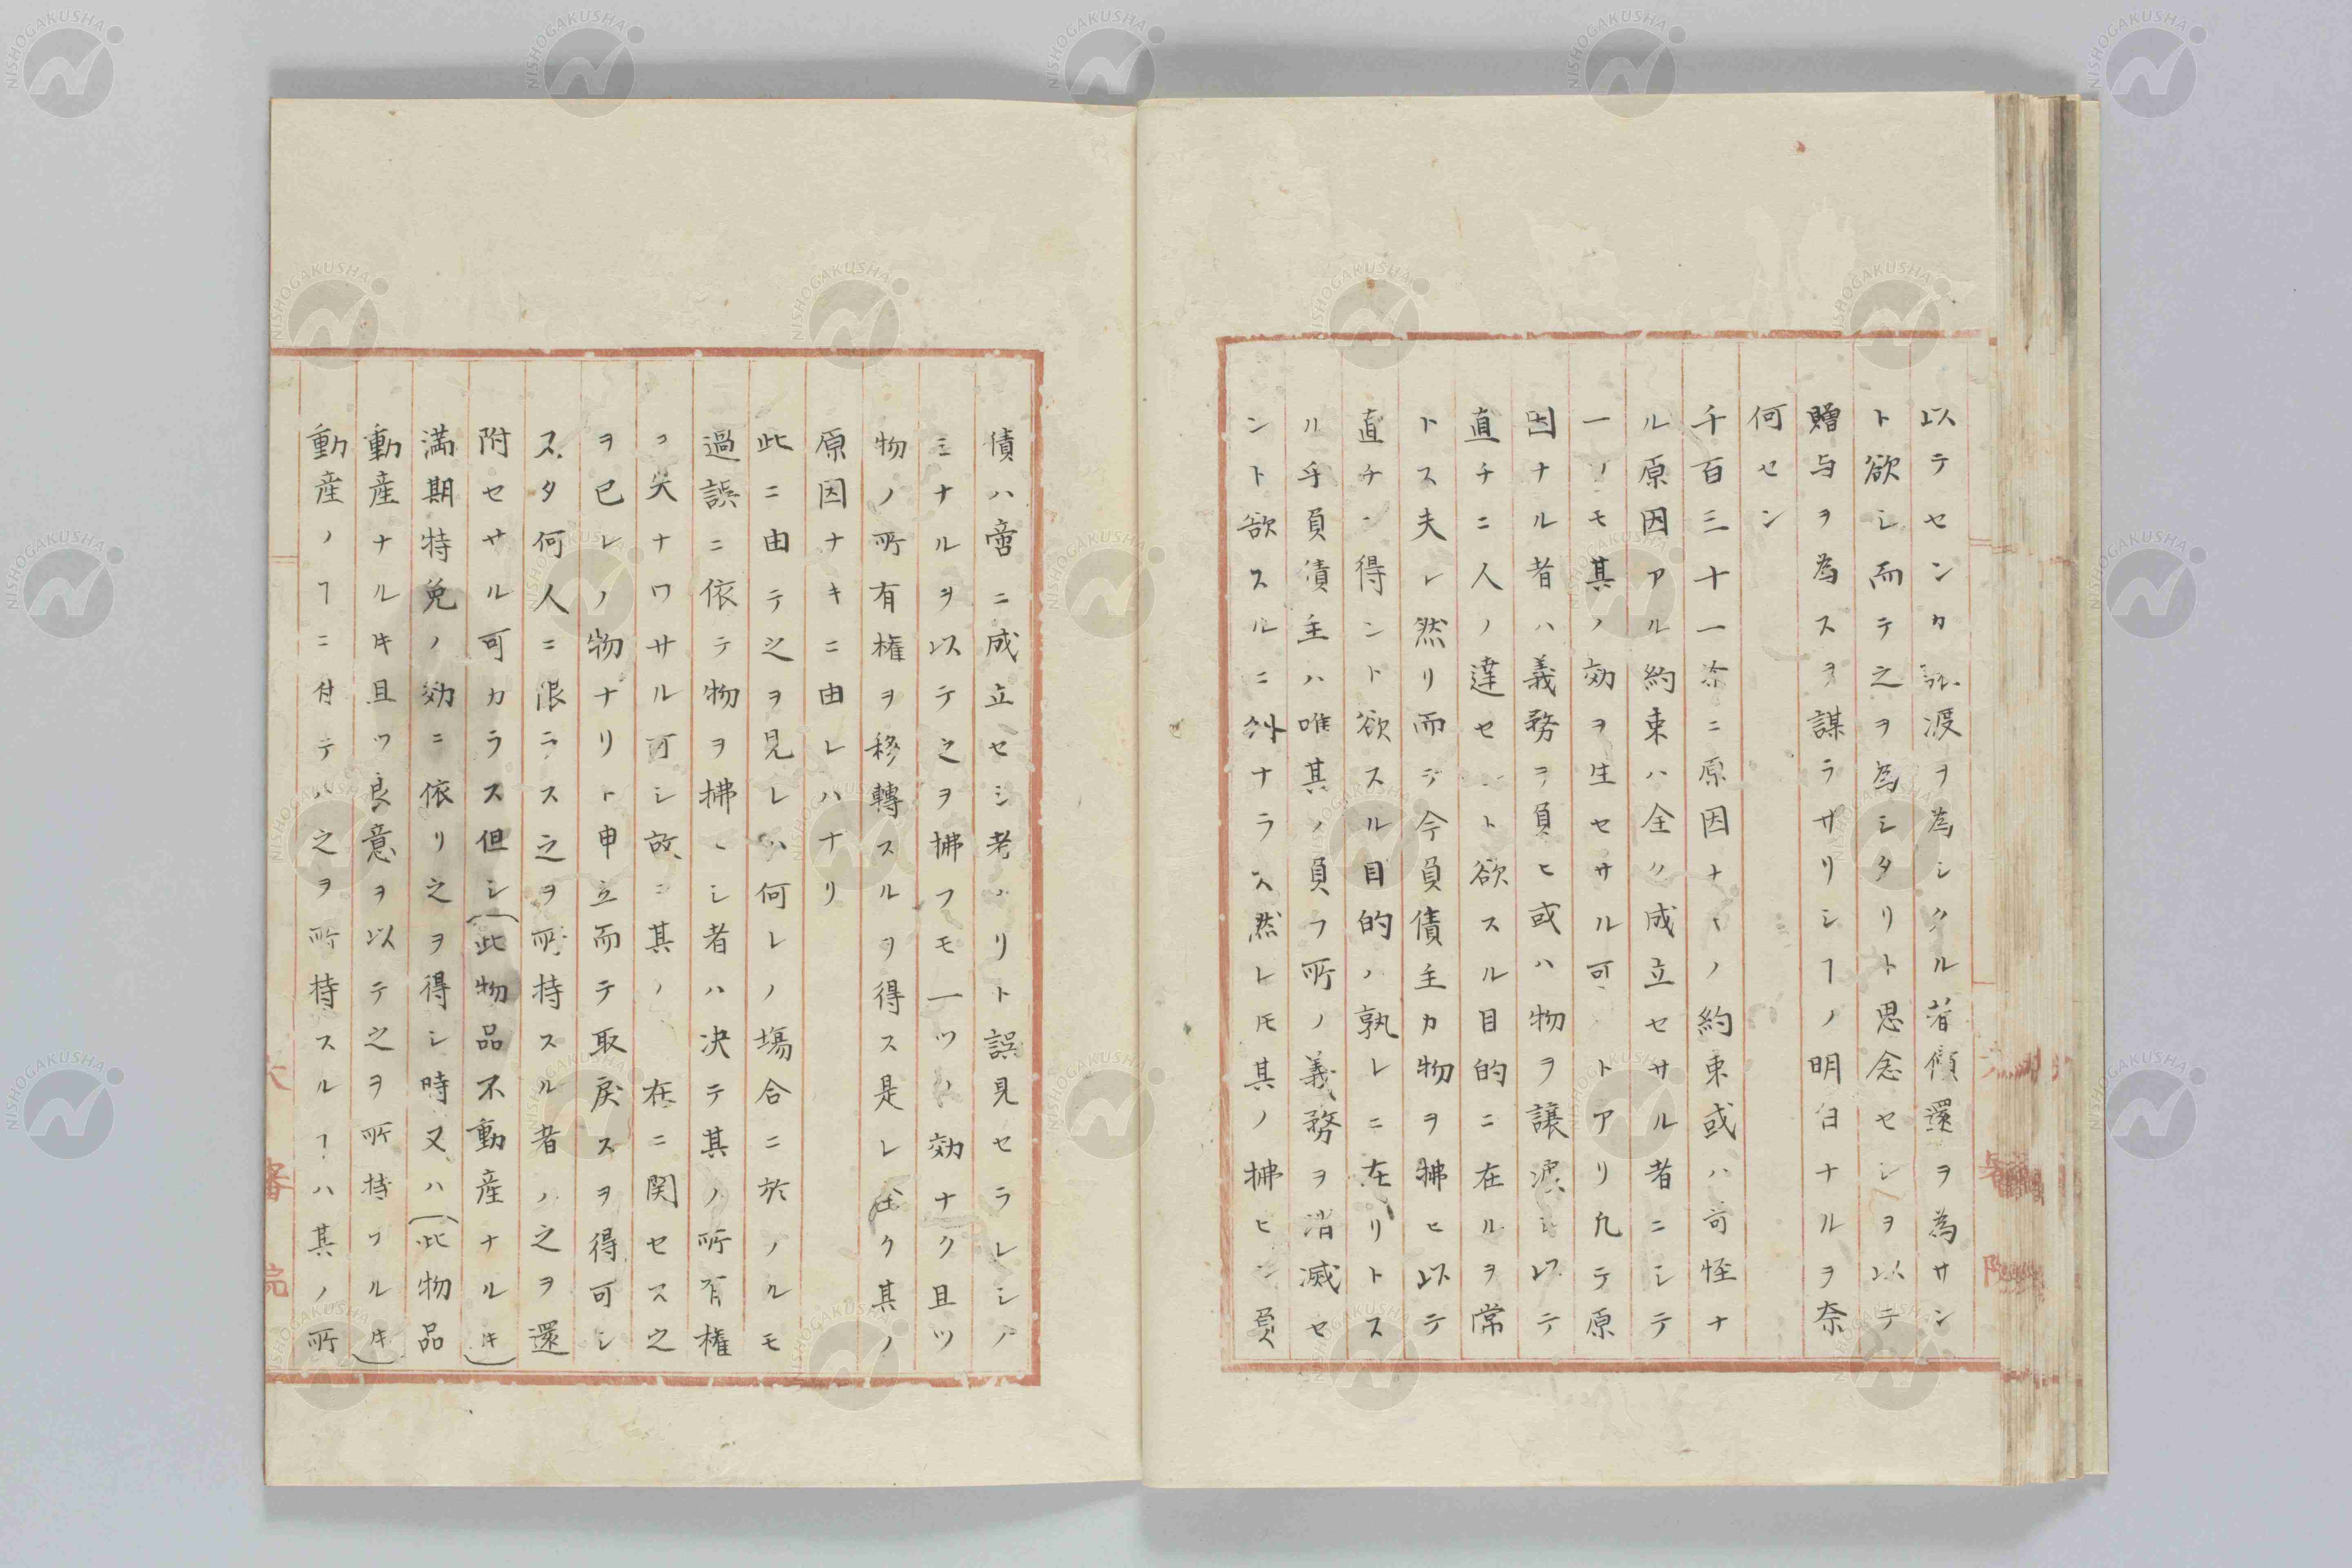 以テセンカ譲渡ヲ為シタル者償還ヲ為サン
ト欲シ而テ之ヲ為シタリト思念セシヲ以テ
贈与ヲ為スヲ謀ラサリシヿノ明白ナルヲ奈
何セン
千百三十一条ニ原因ナキノ約束或ハ奇怪ナ
ル原因アル約束ハ全ク成立セサル者ニシテ
一ノモ其ノ効ヲ生セサル可シトアリ凢テ原
因ナル者ハ義務ヲ負ヒ或ハ物ヲ譲渡シ以テ
直チニ人ノ達セント欲スル目的ニ在ルヲ常
トス夫レ然リ而シテ今負債主カ物ヲ拂ヒ以テ
直チニ得ント欲スル目的ハ孰レニ在リトス
ル乎負債主ハ唯其ノ負フ所ノ義務ヲ消滅セ
ント欲スルニ外ナラス然レㇳモ其ノ拂ヒシ負
債ハ啻ニ成立セシ者ナリト誤見セラレシノ
ミナルヲ以テ之ヲ拂フモ一ツノ効ナク且ツ
物ノ所有権ヲ移轉スルヲ得ス是レ全ク其ノ
原因ナキニ由レハナリ
此ニ由テ之ヲ見レハ何レノ塲合ニ於ルモ
過誤ニ依テ物ヲ拂ヒシ者ハ决テ其ノ所有権
ヲ失ナワサル可シ故ニ其ノ 在ニ関セス之
ヲ己レノ物ナリト申立而テ取戻スヲ得可シ
又タ何人ニ限ラス之ヲ所持スル者ノ之ヲ還
附セサル可カラス但シ(此物品不動産ナルキ)
満期特免ノ効ニ依リ之ヲ得シ時又ハ(此物品
動産ナルキ且ツ良意ヲ以テ之ヲ所持フルキ)
動産ノヿニ付テハ之ヲ所持スルヿハ其ノ所